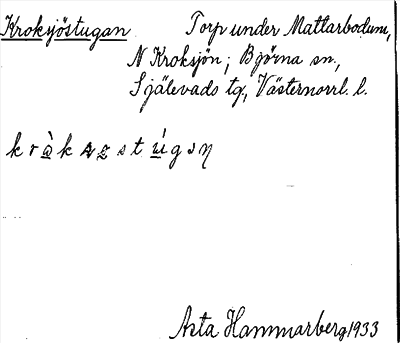 Krokyöstugan Torp under Mattarbodum,
N Kroksjön; Björna sn,
Själevads tg, Västernorrl. l.
Asta Hammarberg 1933